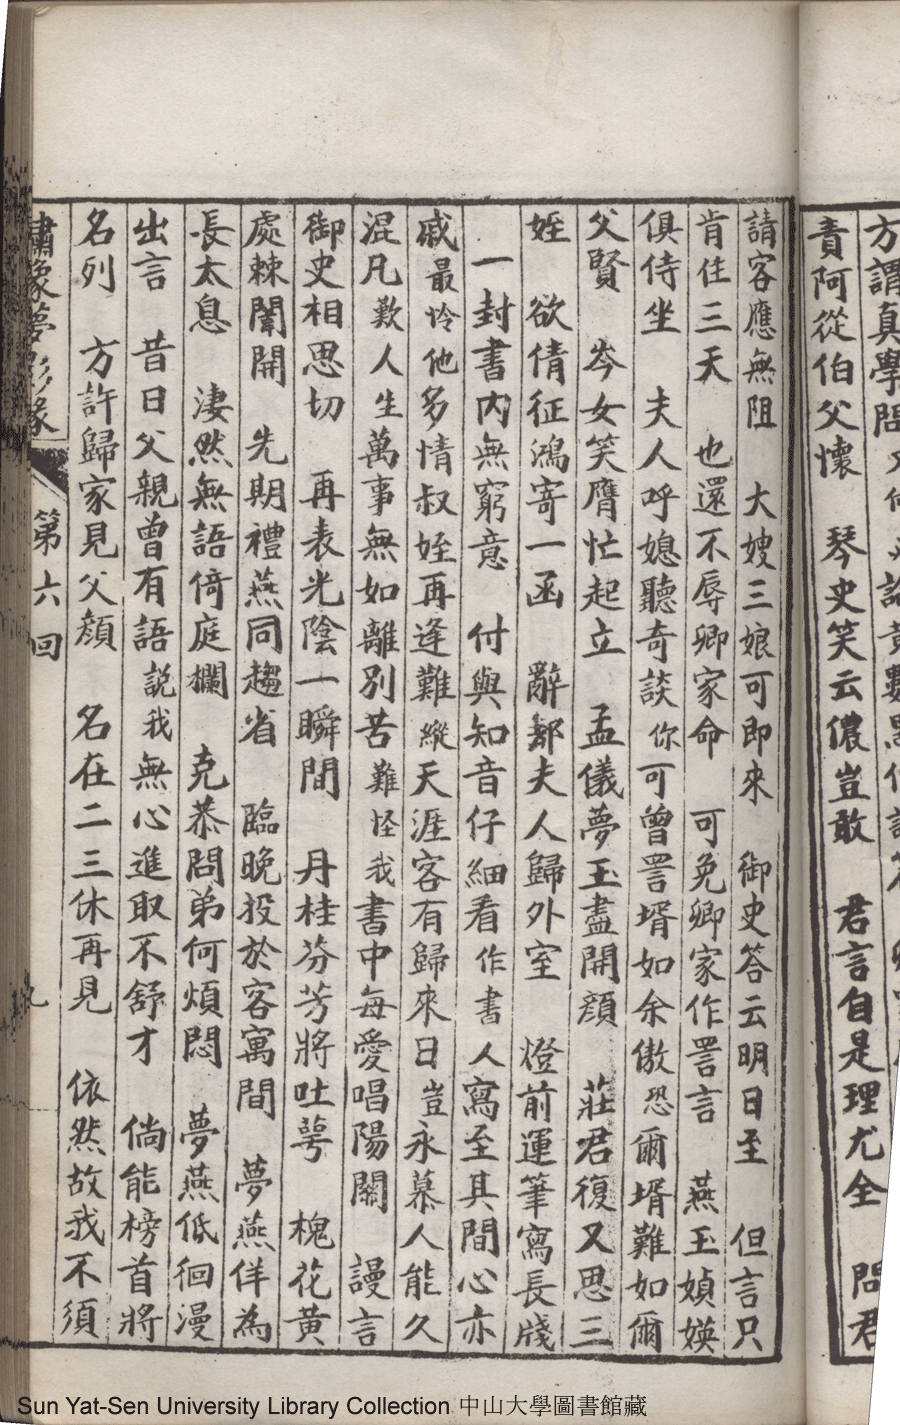 方謂真學問
責阿從伯父懷　琴史笑云儂豈敢　君言自是理尤全　問君
請客應無阻　大嫂三娘可即來　御史答云明日至　但言只
肯住三天　也還不辱卿家命　可免卿家作詈言　燕玉媜媖
俱侍坐　夫人呼媳聽奇談　你可曾詈壻如余傲　恐爾壻難如爾
父賢　岑女笑膺忙起立　孟儀夢玉盡開顔　莊君復又思三
姪　欲倩征鴻寄一函　辭鄰夫人歸外室　燈前運筆寫長牋
一封書內無窮意　付與知音仔細看　作書人寫至其間心亦
戚　最怜他多情叔姪再逢難　縱天涯客有歸來日　豈永慕人能久
混凡　歎人生萬事無如離別苦　難怪我書中每愛唱陽關　謾言
御史相思切　再表光陰一瞬間　丹桂芬芳將吐萼　槐花黃
處棘闈開　先期禮燕同趨省　臨晚投於客寓間　夢燕佯為
長太息　淒然無語倚庭欄　克恭問弟何煩悶　夢燕低徊漫
出言　昔日父親曾有語　說我無心進取不舒才　倘能榜首將
名列　方許歸家見父顔　名在二三休再見　依然故我不須
繡像夢影緣　第六回
Sun Yat-Sen University Library Collection 中山大學圖書館藏